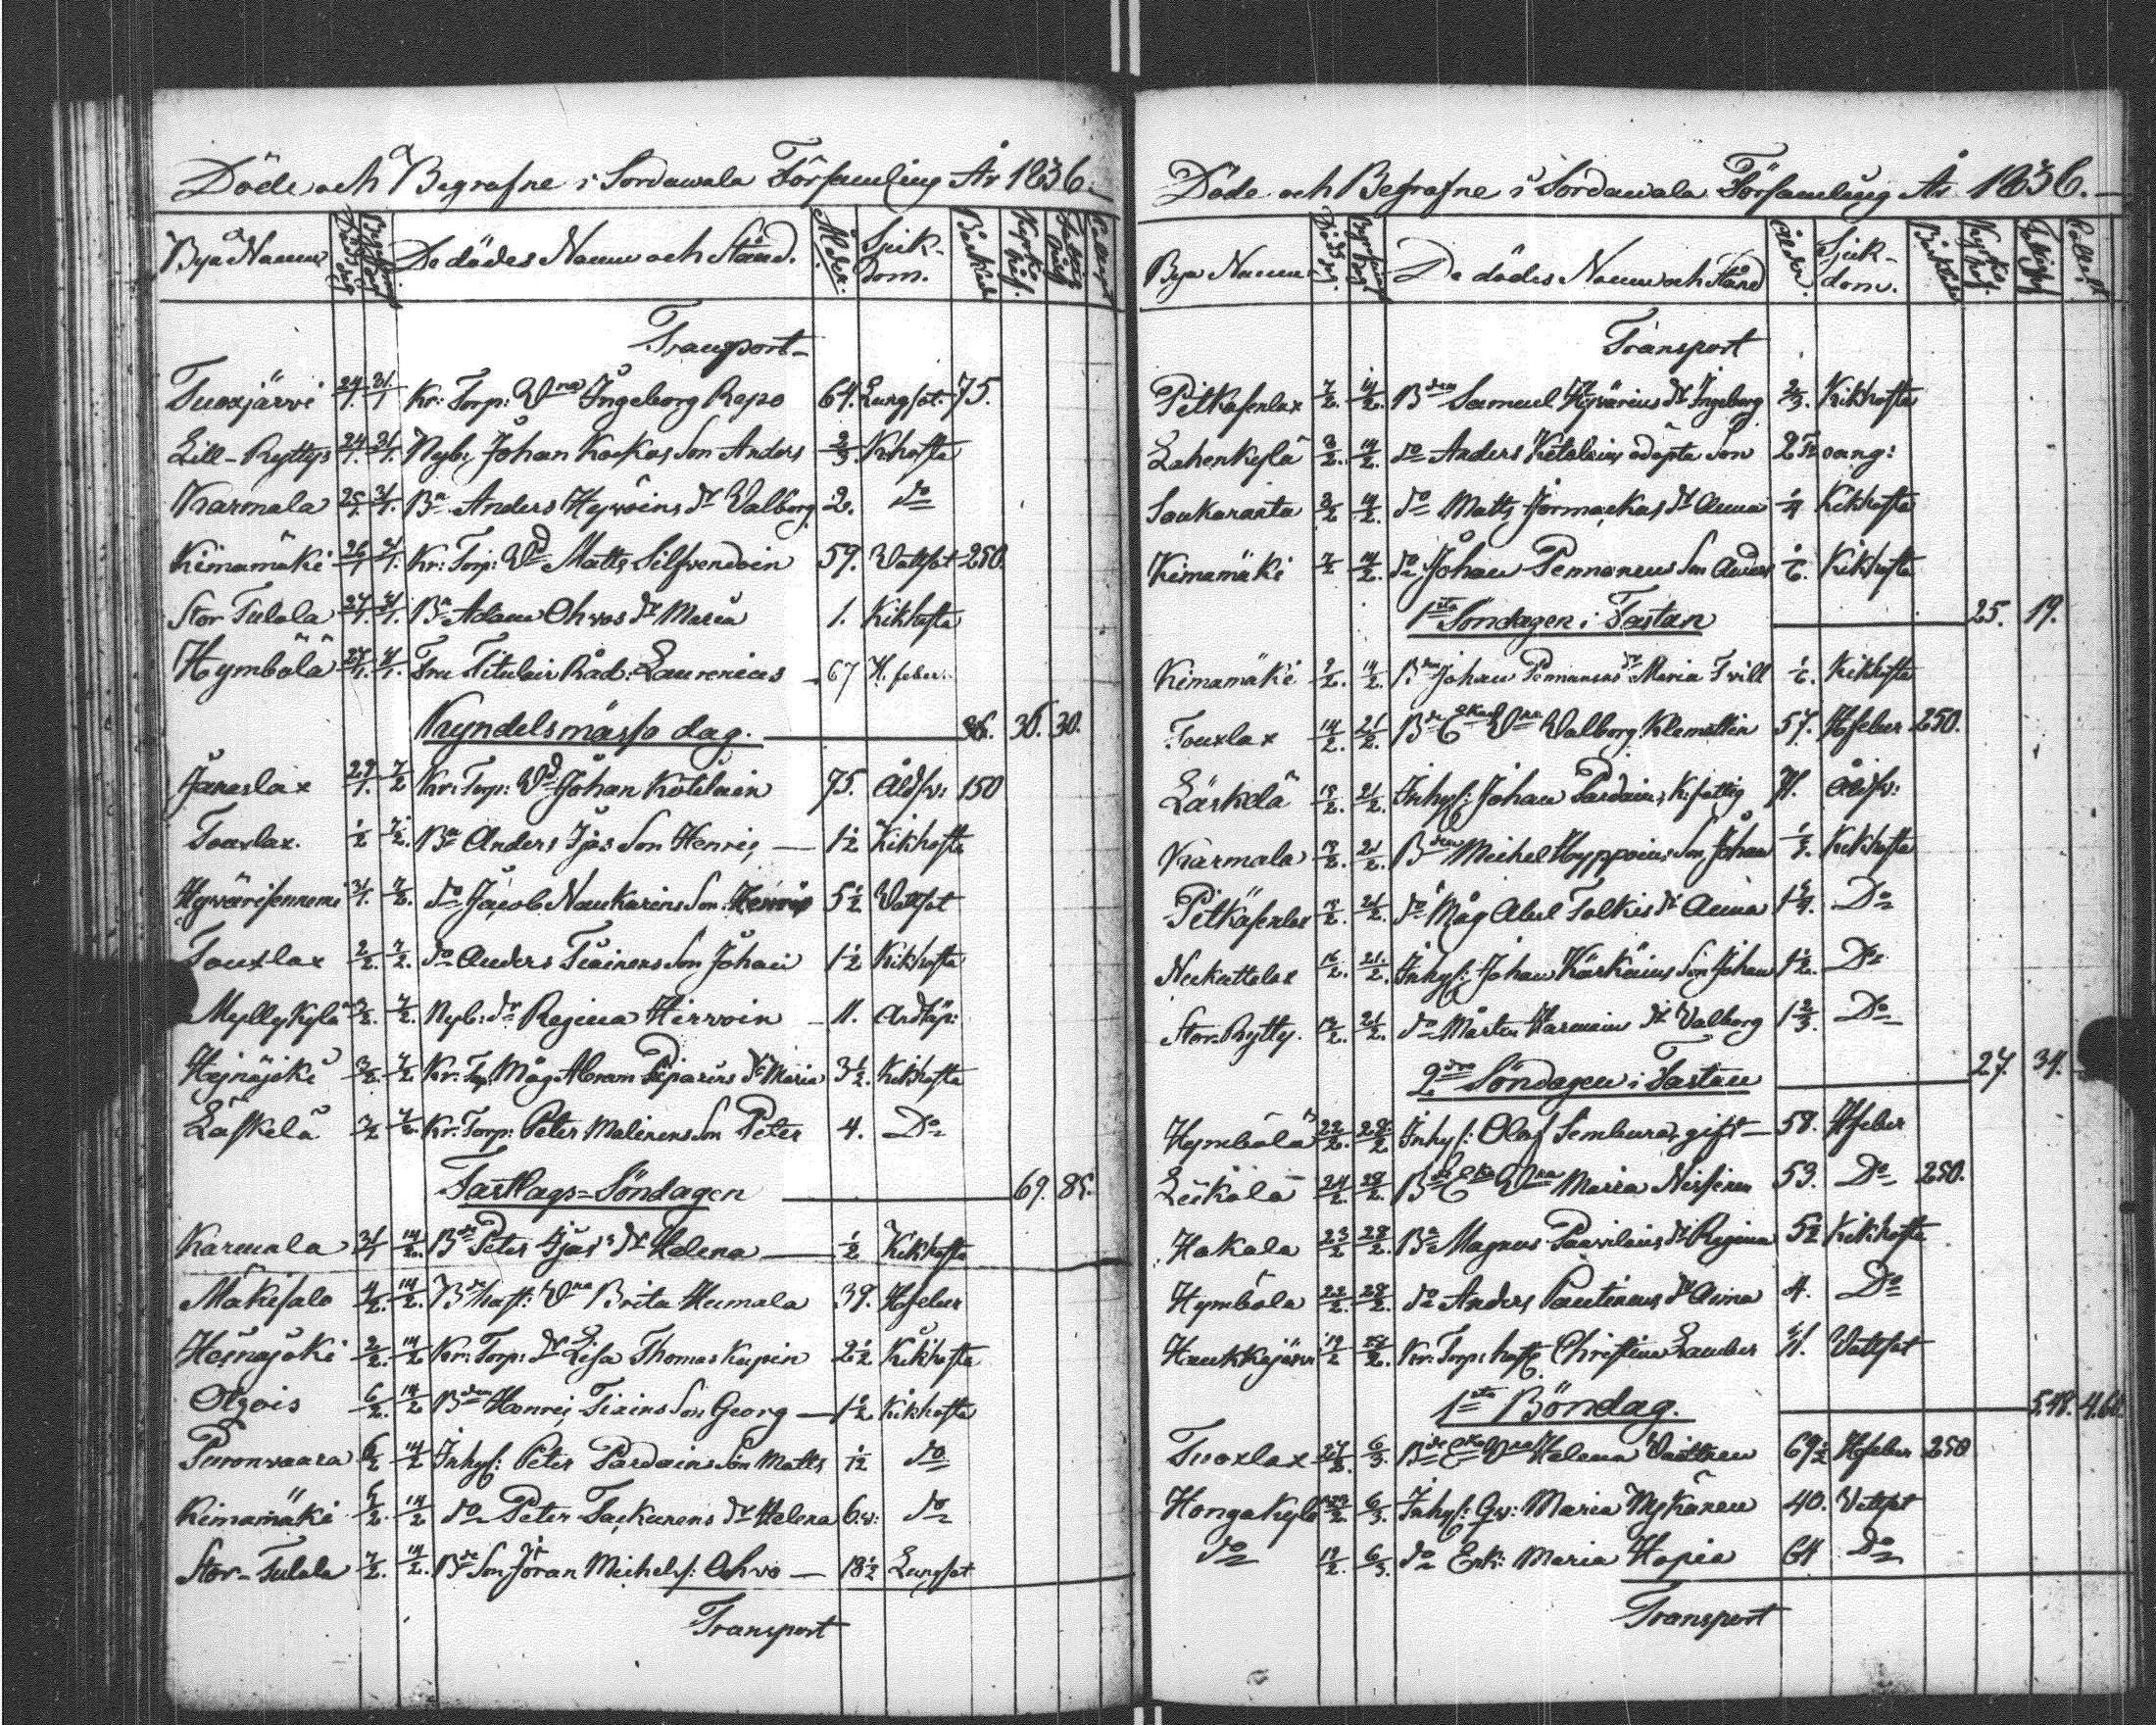 Döde och Begrafne i Sordawala Församling År 1836.
Bya Namn Döds dag Begrafnings dag De dödes Namn och Stånd. Ålder. Sjukdom.
Transport
Tuoxjärvi 24/1. 31/1 Kr: Torp: Ena Ingeborg Repo 64. Lungsot. 75.
Lill-Ryttys 24/1. 31/1. Nyb: Johan Kockas Son Anders 2/3. Kikhosta
Karmala 25/1. 31/1. Bn Anders Hyvöins dr Valborg 2. do
Kimamäki 26/1 31/1. Kr: Torp: Matts Silfvendoin 59. Vattsot 250.
Stor Tulola 27/1. 31/1. Bn Adam Ohvos dr Maria 1. Kikhosta
Hymbölä 27/1. 31/1. Fru Titulair Råd: Laurenius 67 H. feber.
Kyndelsmässo dag. 36. 36. 30.
Janaslax 29/1. 7/2 Kr: Torp: Johan Kotilain 75. Åldsv: 150
Touxlax. 1/2 7/2. Bn Anders Ijäs Son Henric 1½ Kikhosta
Hyvärisenniemi 31/1. 7/2. do Jacob Naukarins Son Henric 5½ Vattsot
Touxlax 2/2. 7/2. do Anders Tiainens Son Johan 1½ Kikhosta
Myllykylä 3/2. 7/2. Nyb: dr Regina Hirvoin 11. Andtäp:
Hejnäjoki 3/2. 7/2 Kr: Torp: Måg Abram Piiparins dr Maria 3½. Kikhosta
Läskelä 3/2 7/2. Kr: Torp: Peter Malinens Son Peter 4. Do
Fastlags-Söndagen 69. 85.
Karmala 31/1 14/2. Bn Peter Ijäs dr Helena ½ Kikhosta
Mäkisalo 4/2. 14/2. Bde hust: Brita Humala 39. Hfeber
Hejnäjoki 2/2. 14/2 Kr: Torp: dr Lisa Thomas Kupin 2½ Kikhosta
Otzois 6/2. 14/2 Bden Henric Tiains Son Georg 1½ Kikhosta
Puronvaara 6/2 14/2 Inhys: Peter Pardains Son Matts ½ do
Kimamäki 6/2. 14/2 do Peter Tackunens dr Helena 6 w: do
Stor-Tulola 7/2. 14/2. Bde Son Jöran Michels: Ohvo 18½ Lungsot
Transport
Döde och Begrafne i Sordawala Församling År 1836.
Bya Namn Döds dag Begrafnings dag De dödes Namn och Stånd Ålder. Sjukdom.
Transport
Pitkäsenlax 7/2. 14/2. Bden Samuel Hyvärins dr Ingeborg 2/3. Kikhosta
Lahenkylä 8/2. 14/2. do Anders Ketolains adopta Son 2 oang:
Soukaranta 8/2 14/2. do Matts Jormackas dr Anna ¼ Kikhosta
Kimamäki 7/2 14/2. do Johan Pennanens Son Anders 1/6. Kikhosta
1sta Söndagen i Fastan 25. 19.
Kimamäki 9/2. 14/2. Bden Johan Pennanens dr Maria Tvill 1/6. Kikhosta
Touxlax 14/2. 21/2. Valborg Klemettin 57. Hfeber 250.
Läskelä 15/2. 21/2. Inhys: Johan Pardain, K: fattig 71. Åldsv:
Karmala 19/2. 21/2. Bden Michel Hyppöins Son Johan Kikhosta
Pitkäsenlax 21/2. do Måg Abel Tolkis dr Anna 1¼. Do
Nukuttalax 16/2. 21/2. Inhys: Johan Kärkäins Son Johan 1½. Do
Stor-Rytty. 21/2. do Mårten Harmains dr Valborg 1 2/3. Do
2dra Söndagen i Fastan 27. 34.
Hymbölä 22/2. 28/2 Inhys: Olof Sembura, gift 58. Hfeber
Leikälä 24/2. 28/2. Maria Nissinen 53. Do 250.
Hakala 23/2 28/2. Bn Magnus Paavilains dr Regina 5½ Kikhosta
Hymbölä 22/2. 28/2. do Anders Pautinens dr Anna 4. Do
Haukkajärvi 19/2 28/2. Kr: Torp: hust: Christina Lamber 41. Vattsot
1sta Böndag. 5.48. 4.60.
Tuoxlax 27/2. 6/3. Helena Vaittinen 69½ Hfeber 250
Hongakylä 6/3. Inhys: Qv: Maria Mykänen 40. Vattsot
do 19/2. 6/3. do Enk: Maria Hapia 64 Do
Transport